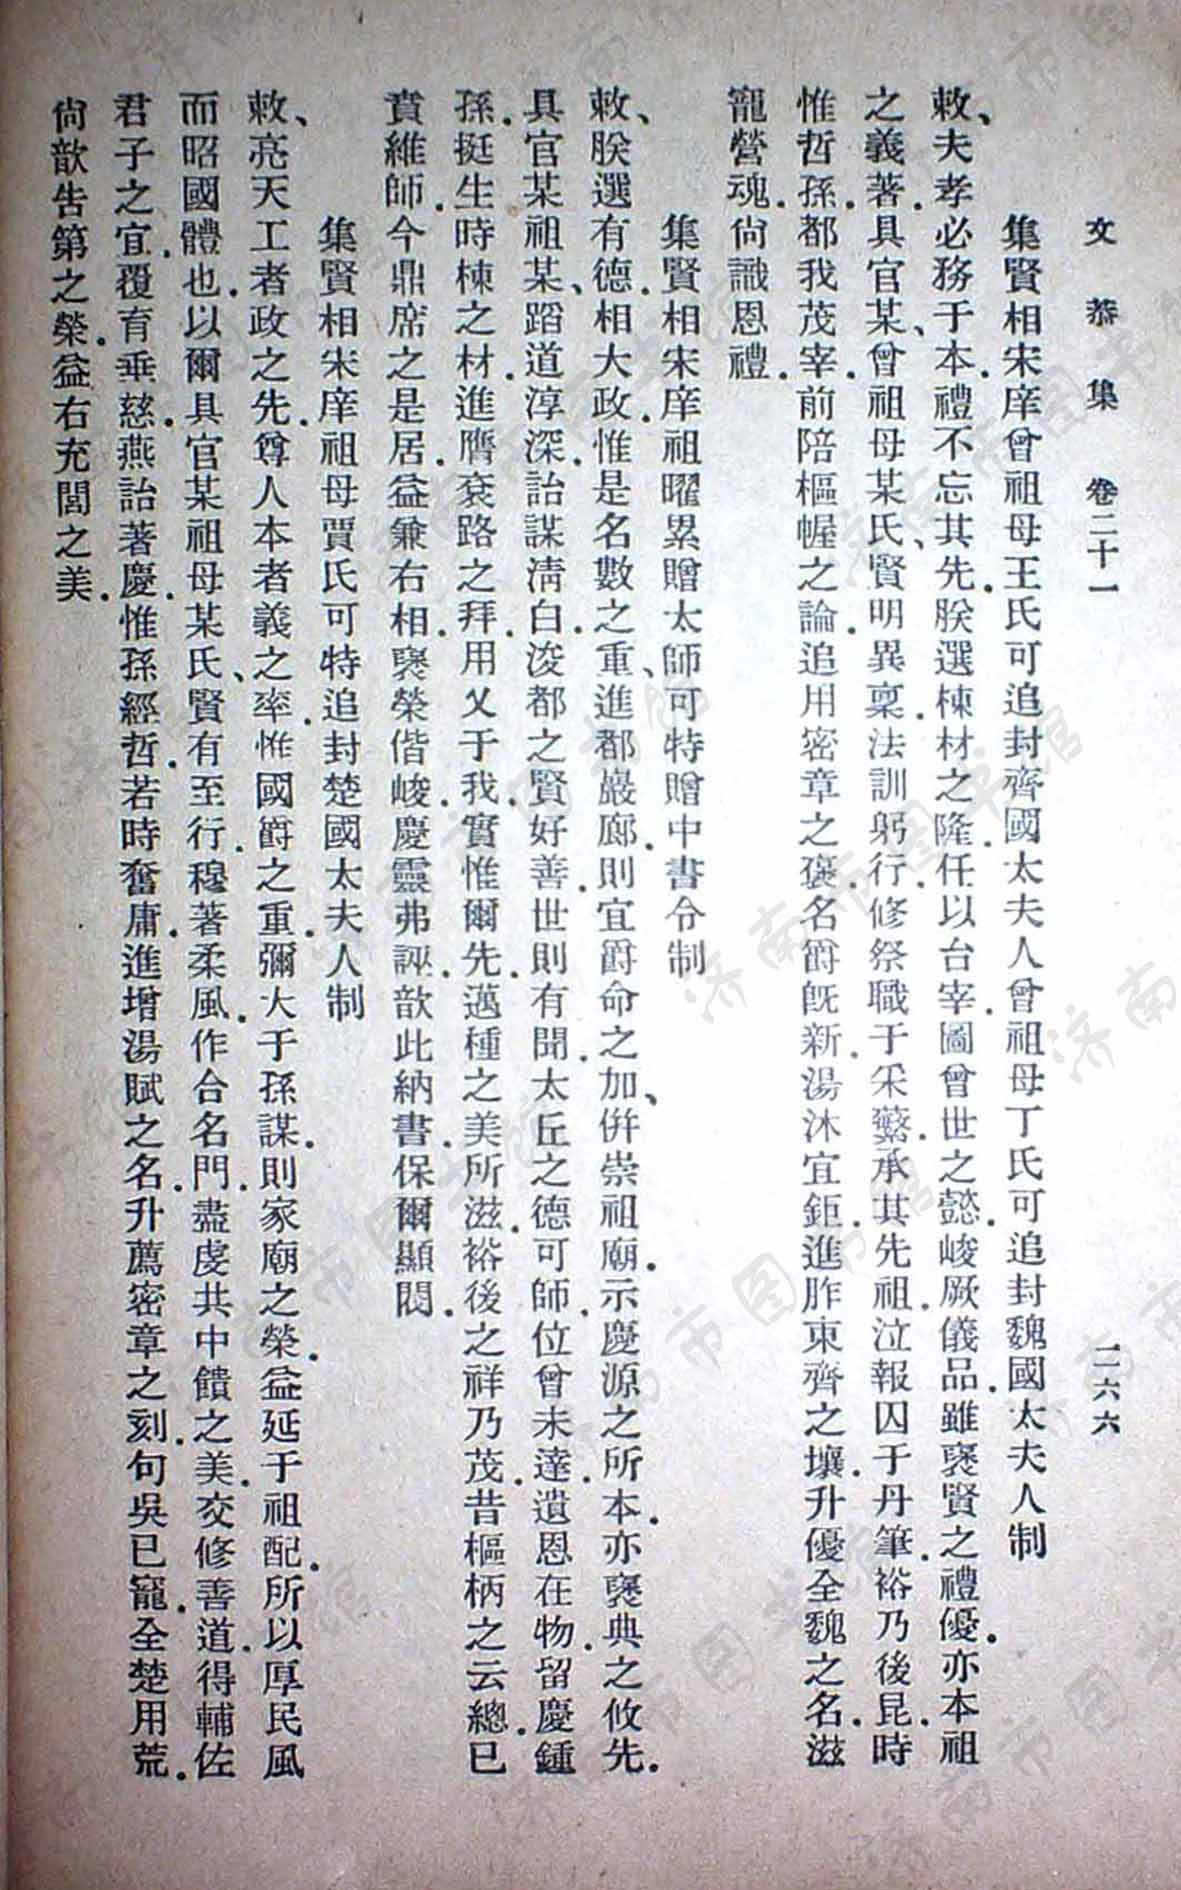 文恭集　卷二十一　二六六
集賢相宋庠曾祖母王氏可追封齊國太夫人曾祖母丁氏可追封魏國太夫人制
敕、夫孝必務于本.禮不忘其先.朕選棟材之隆.任以台宰.圖曾世之懿.峻厥儀品.雖褒賢之禮優.亦本祖
之義著.具官某、曾祖母某氏、賢明異稟.法訓躬行.修祭職于采蘩.承其先祖.泣報囚于丹筆.裕乃後昆.時
惟哲孫.都我茂宰.前陪樞幄之論.追用密章之褒.名爵既新.湯沐宜鉅.進胙東齊之壤.升優全魏之名.滋
寵營魂.尙識恩禮.
集賢相宋庠祖曜累贈太師可特贈中書令制
敕、朕選有德.相大政.惟是名數之重、進都巖廊.則宜爵命之加、倂崇祖廟.示慶源之所本.亦褒典之攸先.
具官某祖某、蹈道淳深.詒謀淸白.浚都之賢好善.世則有聞.太丘之德可師.位曾未達.遺恩在物.留慶鍾
孫.挺生時棟之材.進膺袞路之拜.用乂于我.實惟爾先.邁種之美所滋.裕後之祥乃茂.昔樞柄之云總.已
賁維師.今鼎席之是居.益兼右相.褒榮偕峻.慶靈弗誣.歆此納書.保爾顯閟.
集賢相宋庠祖母賈氏可特追封楚國太夫人制
敕、亮天工者政之先.尊人本者義之率.惟國爵之重.彌大于孫謀.則家廟之榮.益延于祖配.所以厚民風
而昭國體也.以爾具官某祖母某氏、賢有至行.穆著柔風.作合名門.盡虔共中饋之美.交修善道.得輔佐
君子之宜.覆育垂慈.燕詒著慶.惟孫經哲.若時奮庸.進增湯賦之名.升薦密章之刻.句吳已寵.全楚用荒.
尙歆告第之榮.益右充閭之美.